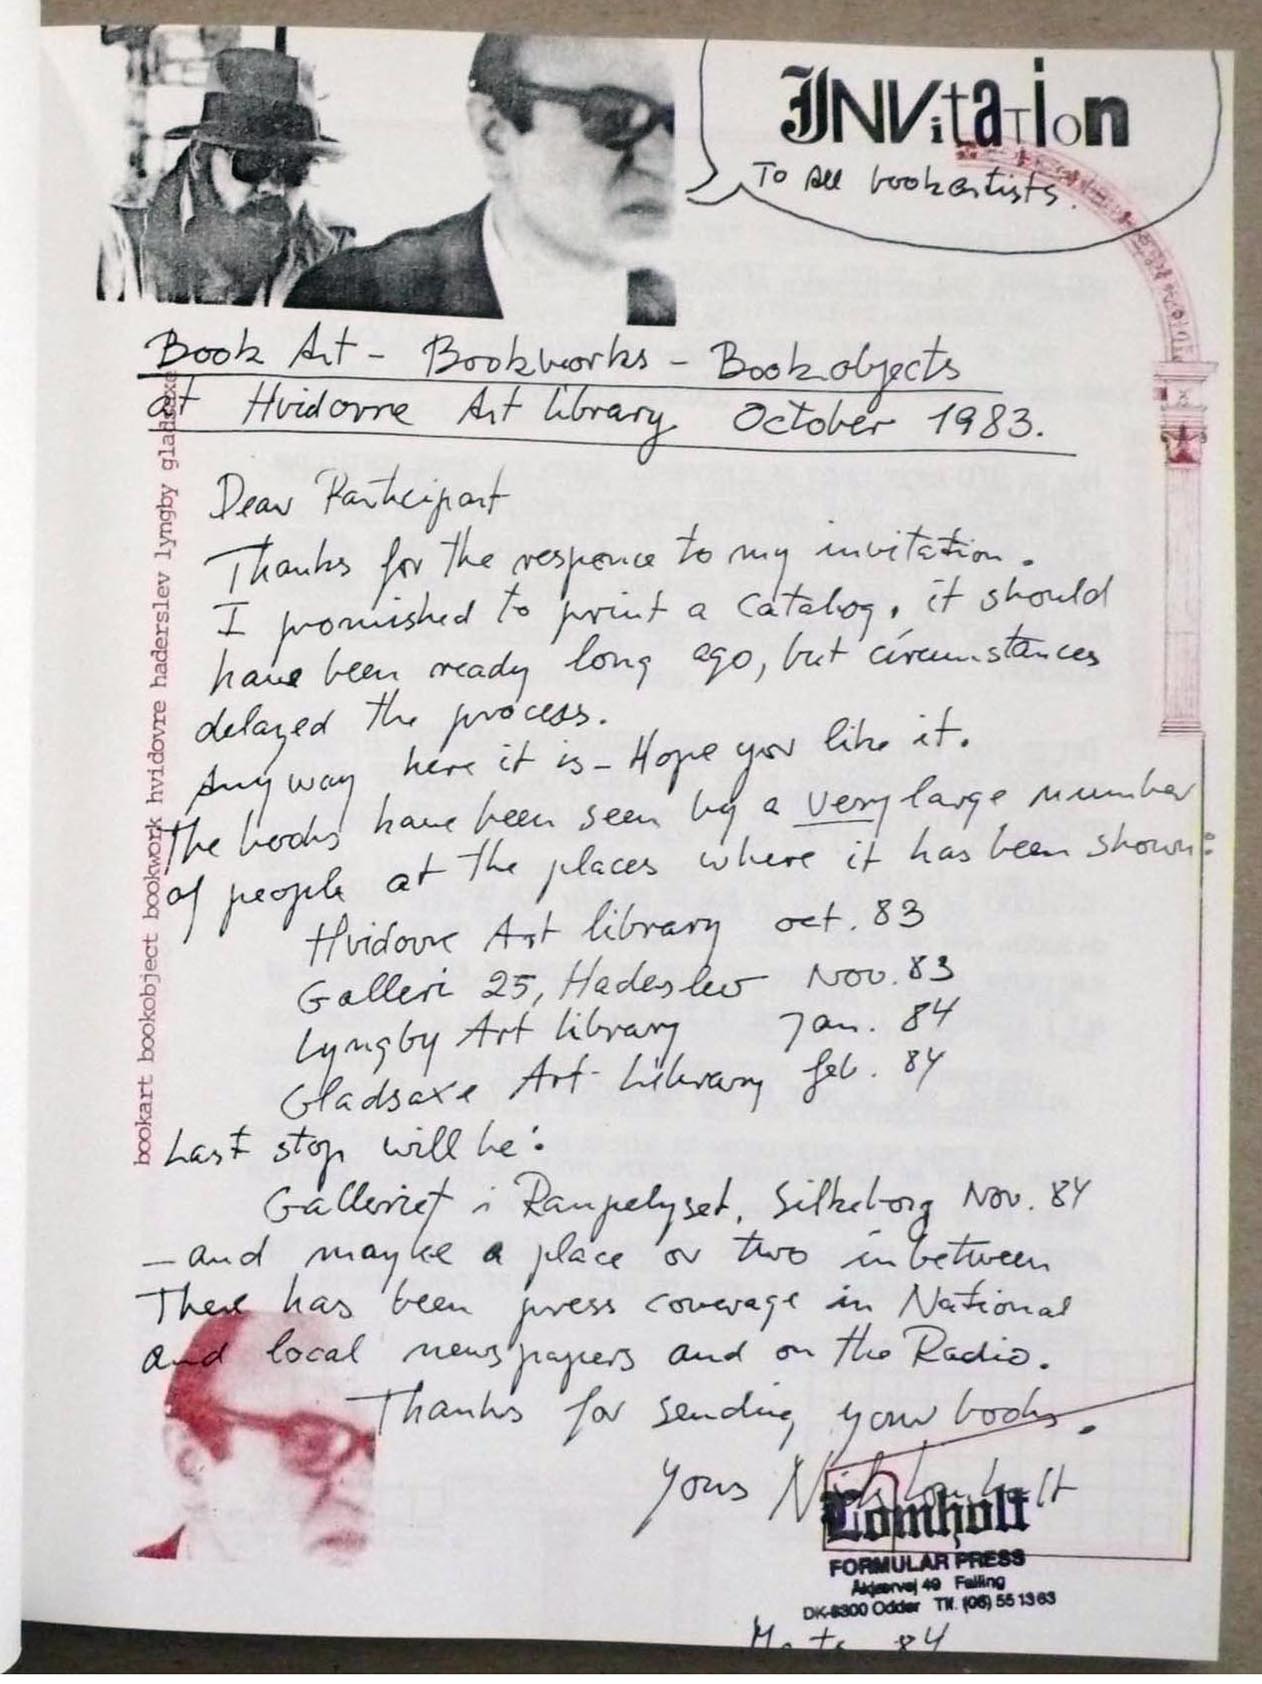 INVitaTion
To all bookartists.
Book Art - Bookworks - Bookobjects
at Hvidovre Art library October 1983.
Dear Participant
Thanks for the responce to my invitation.
I promished to print a catalog, it should
have been ready long ago, but circumstances
delayed the process.
Anyway here it is - Hope you like it.
The books have been seen by a very large number
of people at the places where it has been shown:
Hvidovre Art library oct. 83
Galleri 25, Haderslev Nov. 83
Lyngby Art library Jan. 84
Gladsaxe Art Library feb. 84
Last stop will be:
Galleriet i Rampelyset, Silkeborg Nov. 84
- and maybe a place or two inbetween
There has been press coverage in National
and local newspapers and on the Radio.
Thanks for sending your books.
Yours Niels Lomholt
Lomholt
FORMULAR PRESS
Åkjærvej 49 Falling
DK-8300 Odder Tlf. (06) 55 13 63
84
bookart bookobject bookwork hvidovre haderslev lyngby gladsaxe